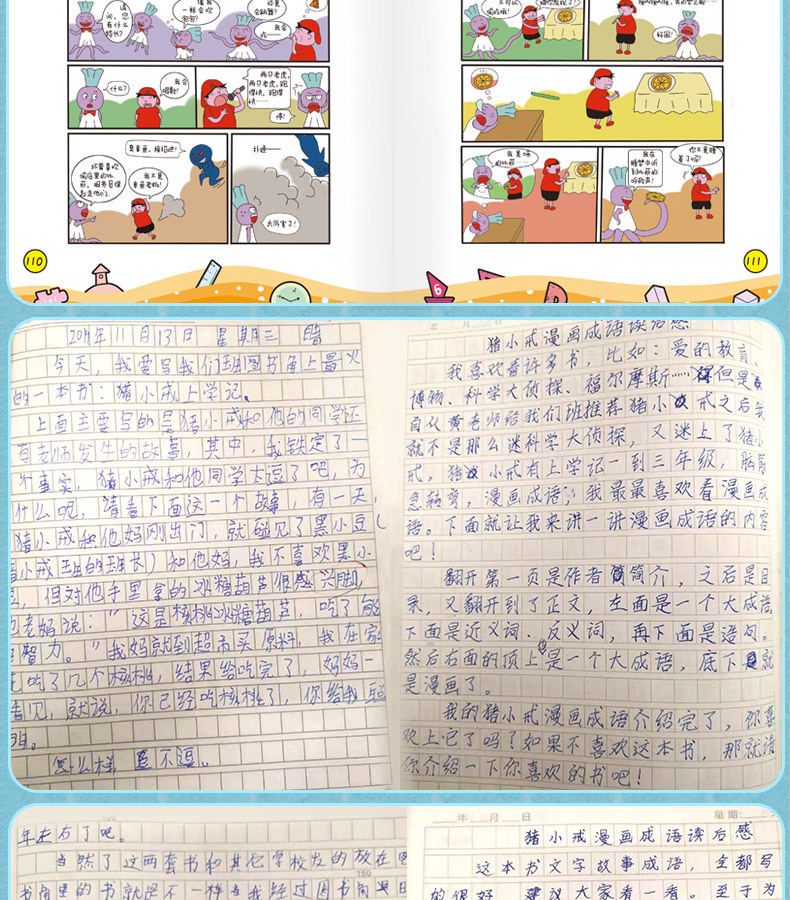 请问，您有什么特长？
一样会喷泡？
还是会跳舞？
我会吃……
什么？
我会唱歌！
两只老虎，
两只老虎，跑
得快，跑得快……
停！
我是章鱼老师！
扑通……
我厉害了！
好困！
我美味
的比萨……
我在
睡梦中听
到比萨的
呼救声！
你不是睡
着了吗？
110
111
6
11月13日 星期三 晴
今天，我要写我们班图书角上最火
的一本书：猪小戒上学记。
上面主要写的是猪小戒和他的同学还
有老师发生的故事，其中，我铁定了一
个事实，猪小戒和他同学太逗了吧，为
什么呢，请看下面这一个故事，有一天，
猪小戒和他妈刚出门，就碰见了黑小豆（
猪小戒班的班长）和他妈，我不喜欢黑小
豆，但对他手里拿的冰糖葫芦很感兴趣，
老妈说：“这是核桃冰糖葫芦，吃了能
智力。”我妈就到超市买原料，我在家
吃了几个核桃，结果给吃完了，妈妈一
看见，就说，你已经吃核桃了，你给我
怎么样 逗不逗。
年 月 日
猪小戒漫画成语读后感
我喜欢看许多书，比如：爱的教育、
博物、科学大侦探、福尔摩斯……但是
自从黄老师给我们班推荐猪小戒之后我
就不是那么迷科学大侦探，又迷上了猪小
戒，猪小戒有上学记一到三年级，脑筋
急转弯，漫画成语；我最最喜欢看漫画成
语。下面就让我来讲一讲漫画成语的内容
吧！
翻开第一页是作者简介，之后是目
录，又翻开到了正文，左面是一个大成语
下面是近义词、反义词，再下面是造句。
然后右面的顶上是一个大成语，底下就
是漫画了。
我的猪小戒漫画成语介绍完了，你喜
欢上它了吗？如果不喜欢这本书，那就请
你介绍一下你喜欢的书吧！
年左右了吧。
当然了这两套书和其它学校发的放在图
150
年 月 日 星期：
猪小戒漫画成语读后感
这本书文字故事成语，全都写
的很好 建议大家看一看。至于为